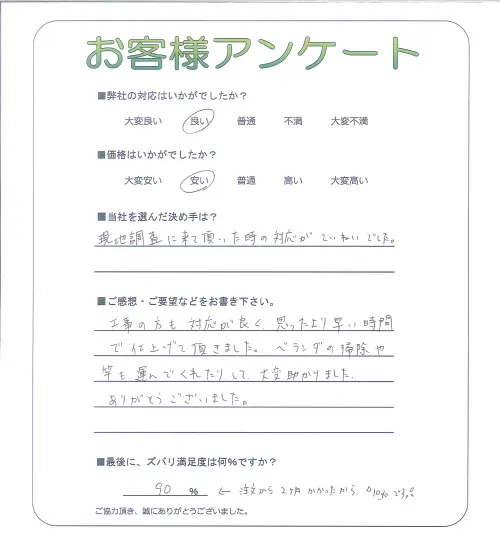 お客様アンケート
■弊社の対応はいかがでしたか？
大変良い 良い 普通 不満 大変不満
■価格はいかがでしたか？
大変安い 安い 普通 高い 大変高い
■当社を選んだ決め手は？
現地調査に来て頂いた時の対応がていねいでした。
■ご感想・ご要望などをお書き下さい。
工事の方も対応が良く、思ったより早い時間
で仕上げて頂きました。ベランダの掃除や
竿も運んでくれたりして、大変助かりました。
ありがとうございました。
■最後に、ズバリ満足度は何%ですか？
90 % ← 注文から2ヶ月かかったから、△10%です。
ご協力頂き、誠にありがとうございました。